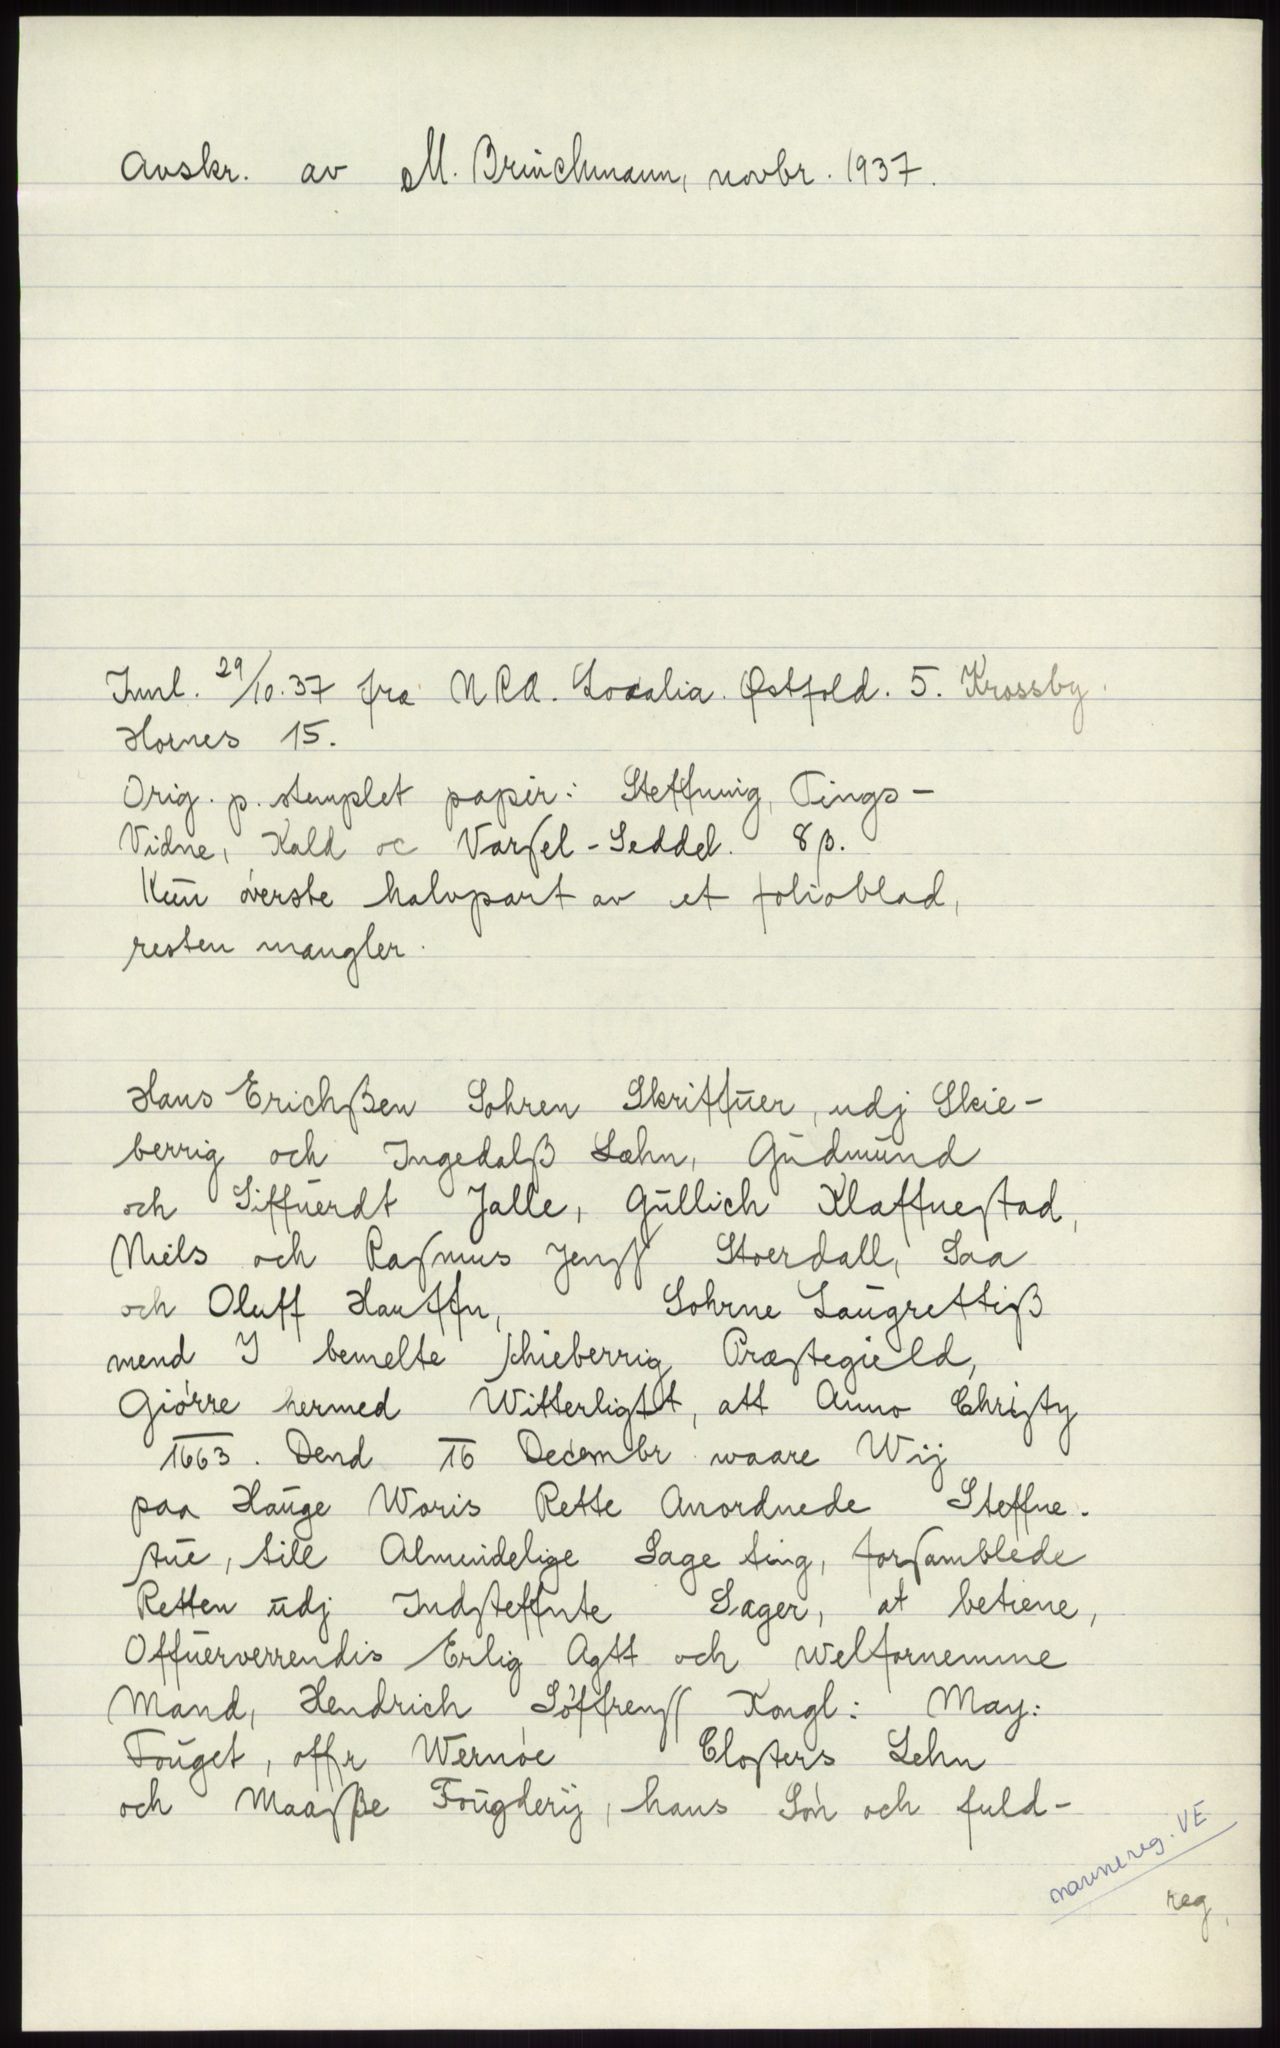 Avskr. av M. Brinchmann, novbr. 1937.
Innl. 29/10.37 fra N R A. Localia. Østfold. 5. Krossby.
Hornes 15.
Orig. p. stemplet papir: Steffning, Tings-
Vidne, Kald oc Varsel-Seddel. 8 β.
Kun øverste halvpart av et folioblad,
resten mangler.
Hans Erichßen Sohren Skriffuer, udj Skie-
berrig och Ingedalß Læhn, Gudmund
och Siffuerdt Jalle, Gullich Klaffnestad,
Niels och Rasmus Jenss Stoerdall, Saa
och Oluff Hauffn, Sohrne Laugrettiß
mend I bemelte schieberrig Præstegield,
Giörre hermed Witterligtt, att Anno Christy
1663. Dend 16 Decembr waare Wij
paa Hauge Woris Rette Anordnede Steffne-
stue, till Almindelige Sage ting, forsamblede
Retten udj Indsteffnte Sager, at betiene,
Offuerverrendis Erlig Agtt och welfornemme
Mand, Hendrich Söffrenss Kongl: May:
Fouget, offr Wernöe Closters Lehn
och Maasße Fougderij, hans Sön och fuld-
navnereg. VE
reg.